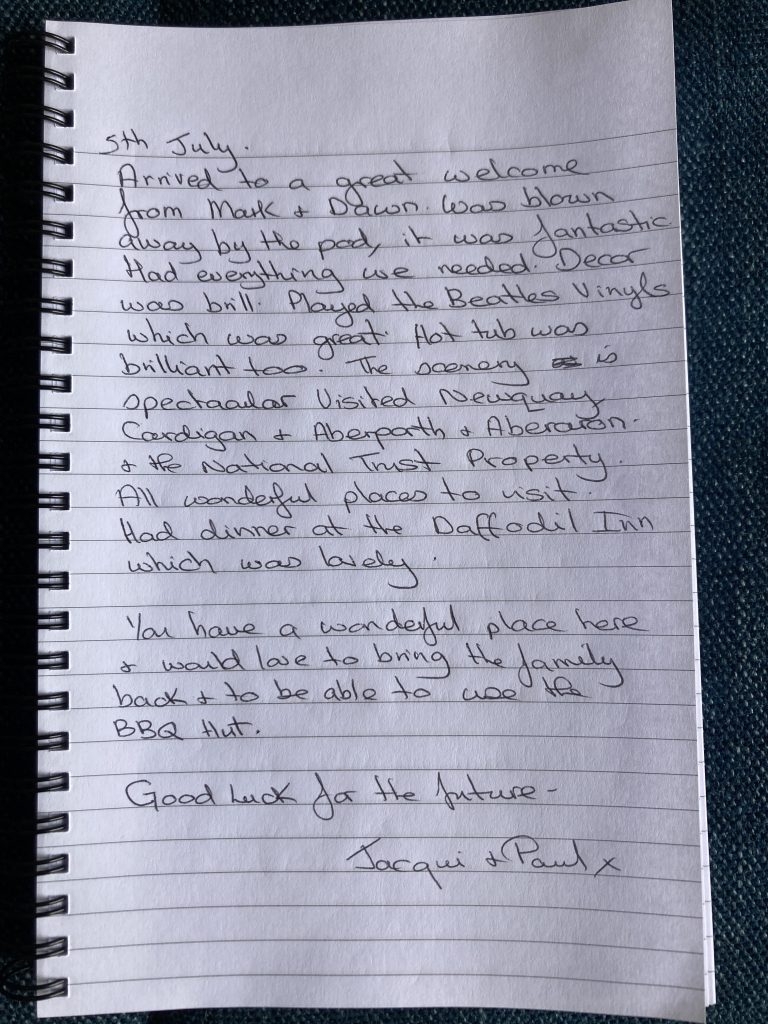 5th July.
Arrived to a great welcome
from Mark & Dawn. Was blown
away by the pad, it was fantastic
Had everything we needed. Decor
was brill. Played the Beatles Vinyls
which was great. Hot tub was
brilliant too. The scenery is
spectacular Visited Newquay
Cardigan & Aberporth & Aberaron.
& the National Trust Property.
All wonderful places to visit.
Had dinner at the Daffodil Inn
which was lovely.
You have a wonderful place here
& would love to bring the family
back & to be able to use the
BBQ Hut.
Good Luck for the future -
Jacqui & Paul x